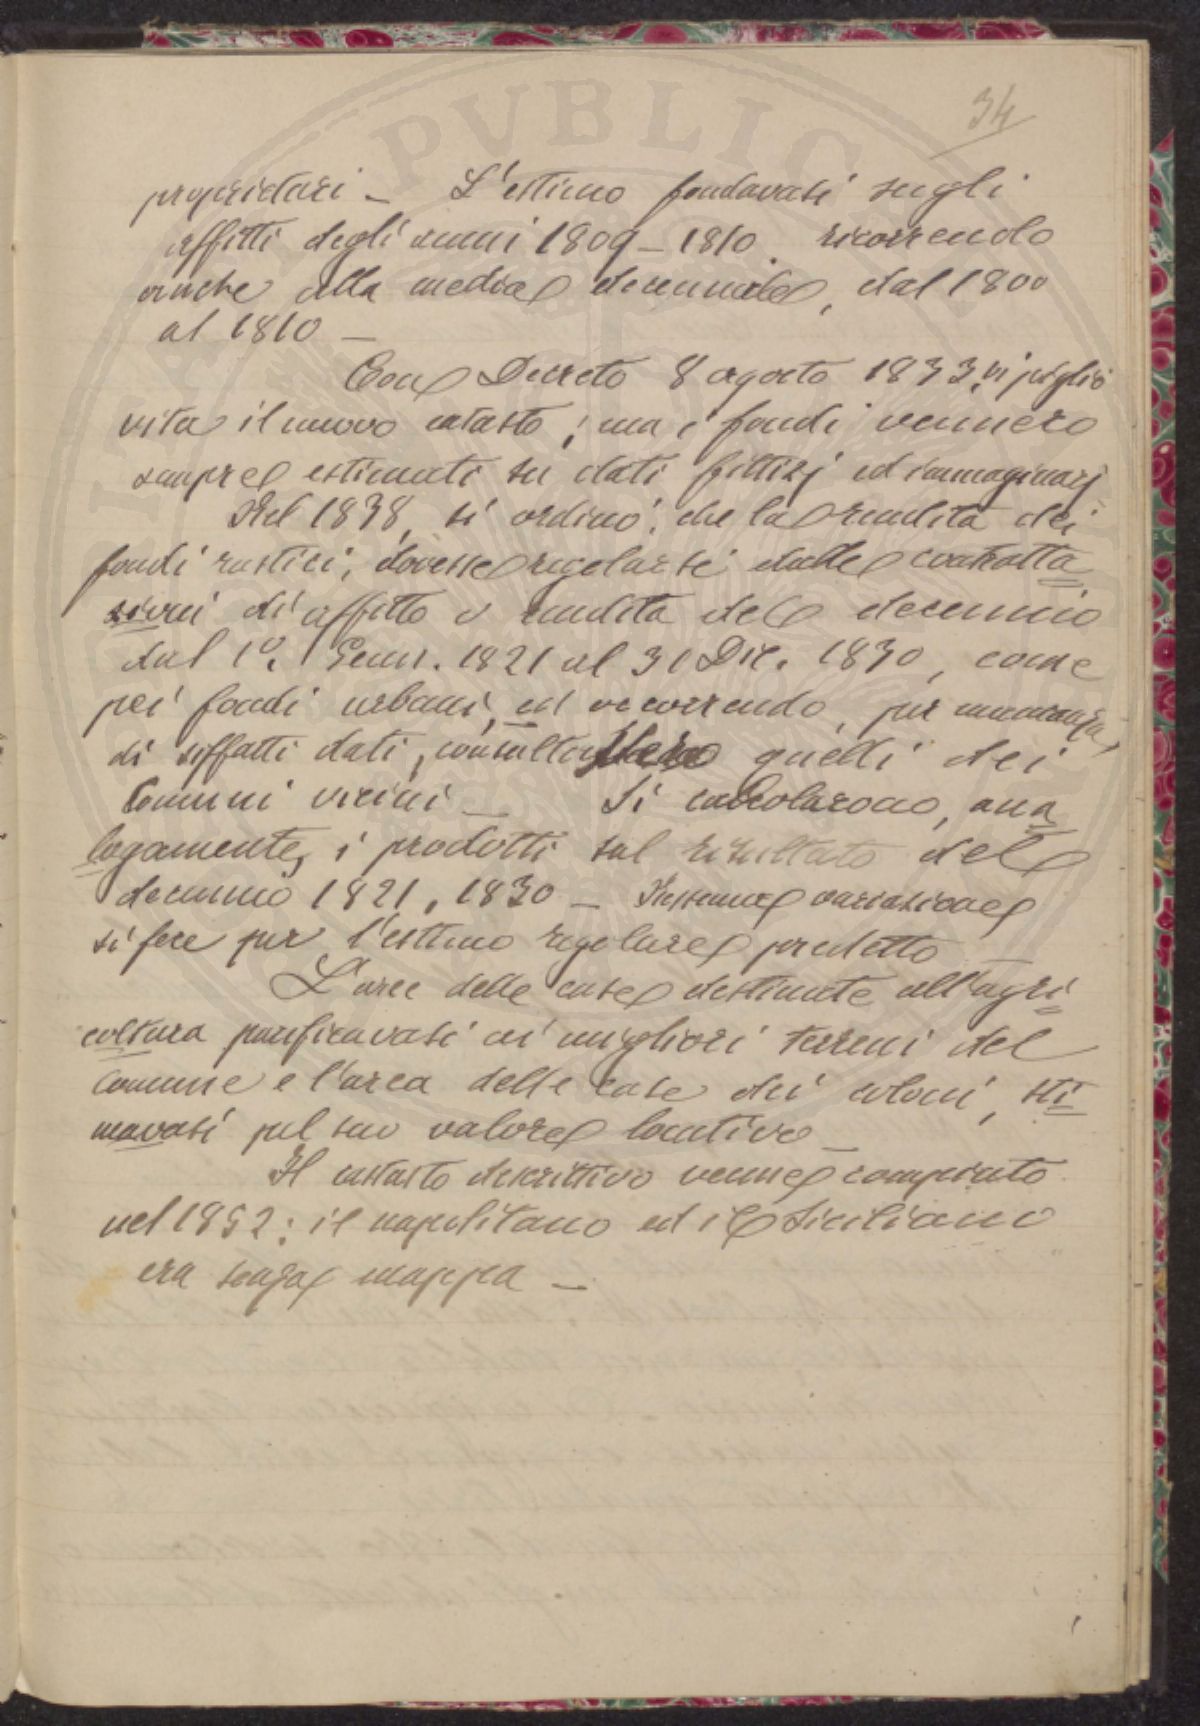 34
proprietari – L'estimo fondavasi sugli
affitti degli anni 1809–1810 ricorrendo
anche alla media decennale, dal 1800
al 1810 –
Con Decreto 8 agosto 1833, si pigliò
vita il nuovo catasto; ma i fondi vennero
sempre estimati su dati fittizj ed immaginarj
Nel 1838, si ordinò, che la rendita dei
fondi rustici, dovesse regolarsi dalle contratta
zioni di affitto o rendita del decennio
dal 1º. Genn. 1821 al 31 Dic. 1830, come
pei fondi urbani, ed occorrendo, per mancanza,
di siffatti dati, quelli dei
Comuni vicini – Si calcolarono, ana
logamente, i prodotti sul risultato del
decennio 1821, 1830 – Nessuna variazione
si fece per l'estimo regolare predetto
L'aree delle case destinate all'agri
coltura parificavasi ai migliori terreni del
Comune e l'area delle case dei coloni, sti
mavasi pel suo valore locativo –
Il catasto descrittivo venne compiuto
nel 1852: il napolitano ed il Siciliano
era senza mappa –
PVBLIC